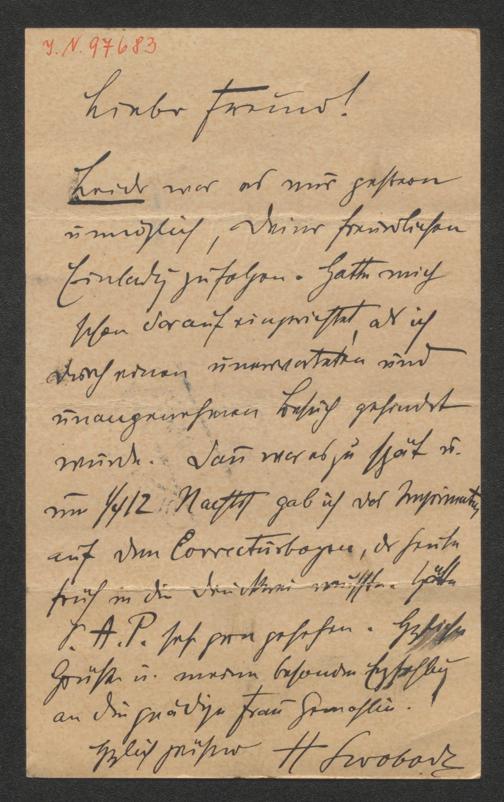 J. N. 97683
Lieber Freund!
Leider war es mir gestern
unmöglich, Deiner freundlichen
Einladg zu folgen. Hatte mich
schon darauf eingerichtet, als ich
durch einen unerwarteten und
unangenehmen Besuch gehindert
wurde. Dann war es zu spät u.
um 1/412 Nachts gab ich das Imprimatur
auf dem Correcturbogen, der heute
früh in die Druckerei mußte. Hätte
A. P. sehr gern gesehen.
Grüße u. meine besondere Empfehlg
an die gnädige Frau Gemahlin.
Herzlich grüßend H Swoboda